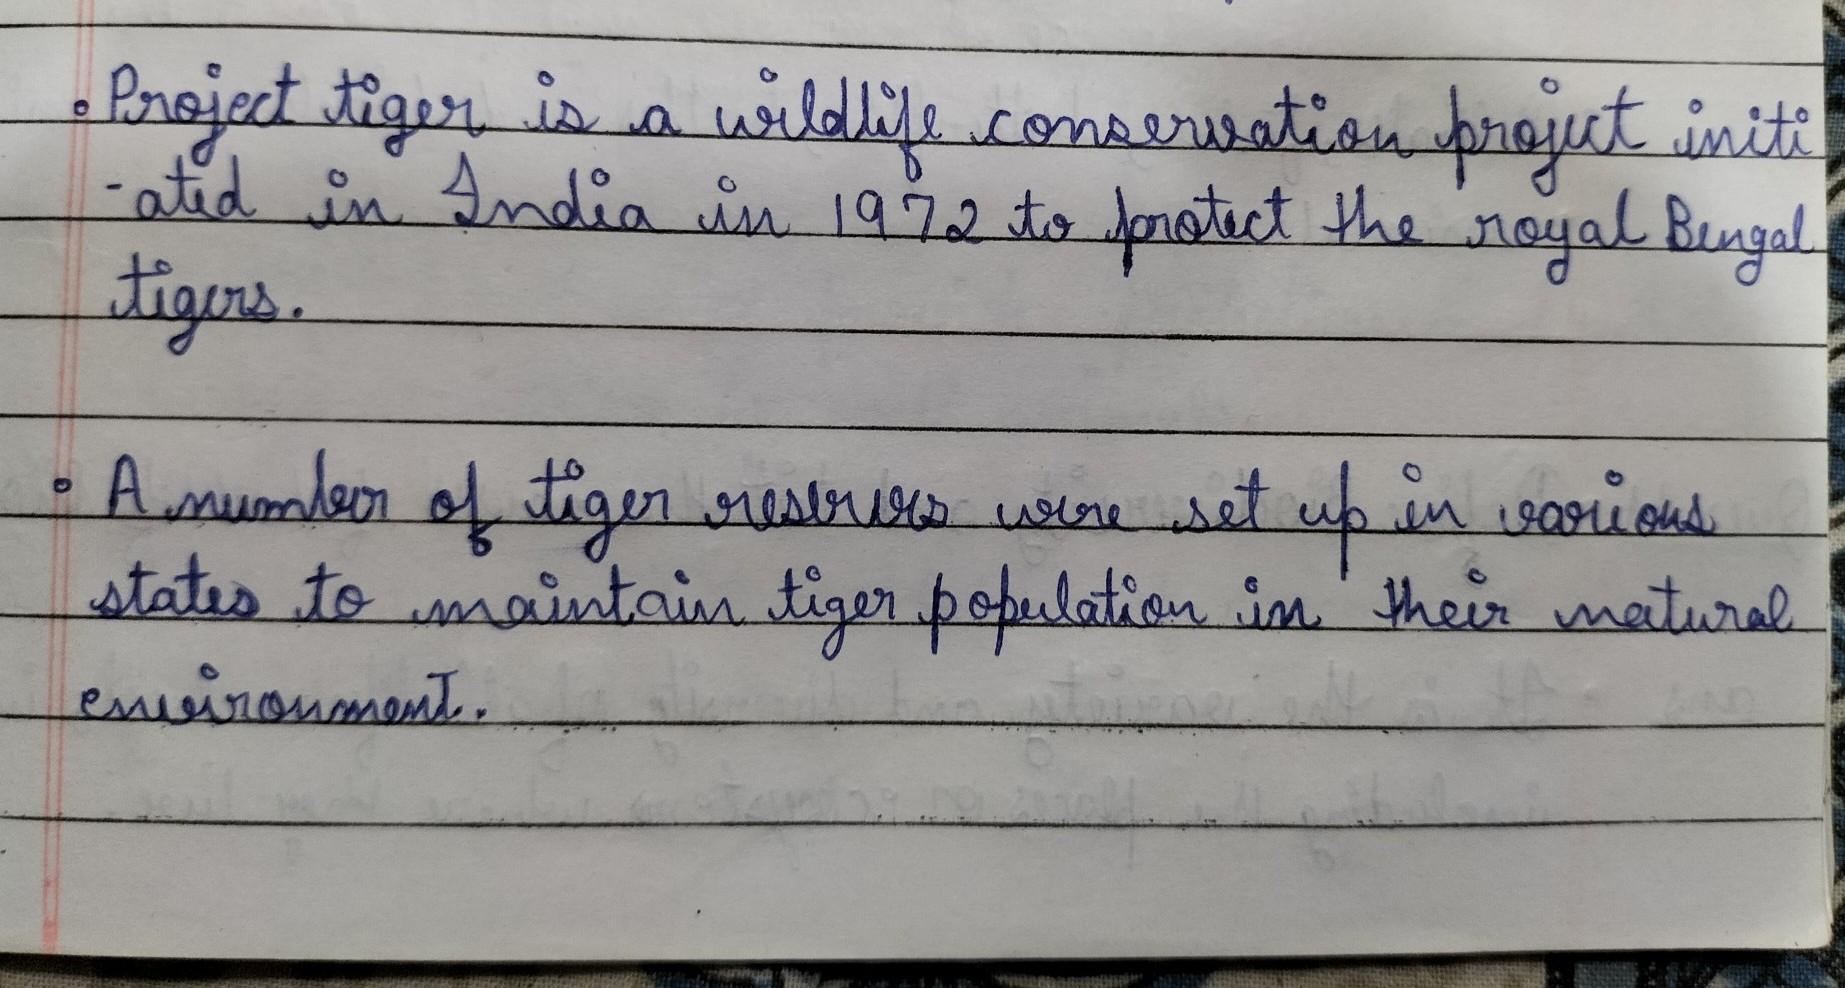 • Project tiger is a wildlife conservation project initi
-ated in India in 1972 to protect the royal Bengal
tigers.
• A number of tiger reserves were set up in various
states to maintain tiger population in their natural
environment.